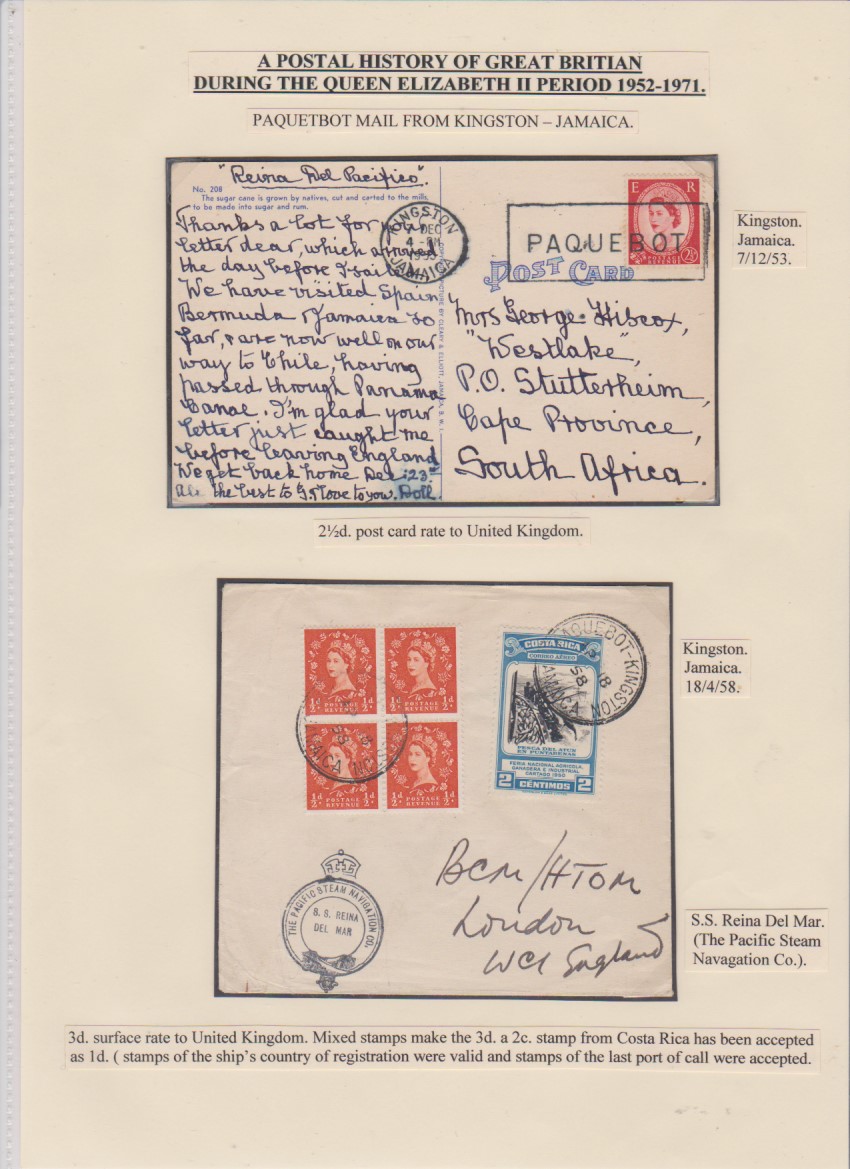 A POSTAL HISTORY OF GREAT BRITIAN
DURING THE QUEEN ELIZABETH II PERIOD 1952-1971.
PAQUETBOT MAIL FROM KINGSTON – JAMAICA.
"Reina Del Pacifico".
No. 208
The sugar cane is grown by natives, cut and carted to the mills,
to be made into sugar and rum.
Thanks a lot for your
letter dear, which arrived
the day before I sailed.
We have visited Spain
Bermuda & Jamaica so
far, & are now well on our
way to Chile, having
passed through Panama
Canal. I'm glad your
letter just caught me
before leaving England
We get back home Dec: 23rd
All the best to G. & love to you. Doll.
PICTURE BY CLEARY & ELLIOTT, JAMAICA, B.W.I.
KINGSTON
7 DEC
4 - PM
1953
JAMAICA
PAQUEBOT
E R
POSTAGE REVENUE
2½
POST CARD
Mrs George Hiscox,
"Westlake",
P.O. Stutterheim,
Cape Province,
South Africa.
Kingston.
Jamaica.
7/12/53.
2½d. post card rate to United Kingdom.
½d POSTAGE REVENUE ½d
½d POSTAGE REVENUE ½d
½d POSTAGE REVENUE ½d
½d POSTAGE REVENUE ½d
COSTA RICA
CORREO AEREO
PESCA DEL ATUN
EN PUNTARENAS
FERIA NACIONAL AGRICOLA,
GANADERA E INDUSTRIAL
CARTAGO 1950
2 CÉNTIMOS 2
PAQUEBOT-KINGSTON
JAMAICA
58
Kingston.
Jamaica.
18/4/58.
BCM/HTOM
London
WC1 England
THE PACIFIC STEAM NAVIGATION CO.
S. S. REINA
DEL MAR
S.S. Reina Del Mar.
(The Pacific Steam
Navagation Co.).
3d. surface rate to United Kingdom. Mixed stamps make the 3d. a 2c. stamp from Costa Rica has been accepted
as 1d. ( stamps of the ship's country of registration were valid and stamps of the last port of call were accepted.